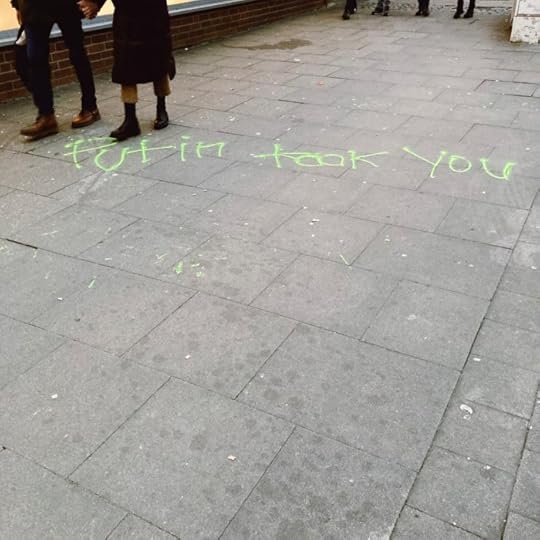 Putin took You